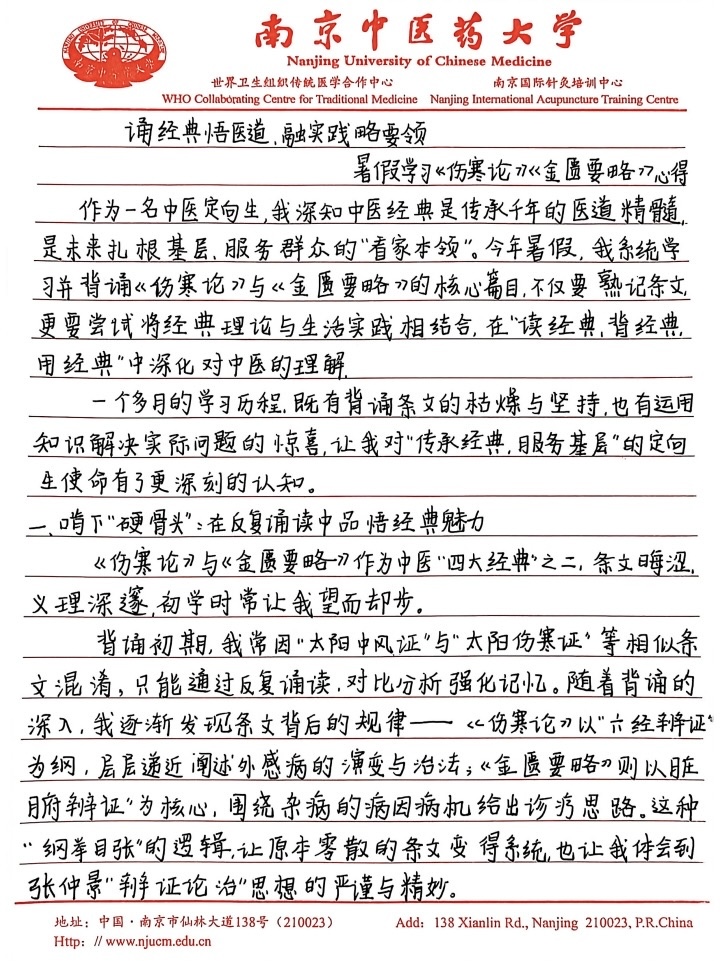 NANJING UNIVERSITY OF CHINESE MEDICINE
南京中医药大学
南京中医药大学
Nanjing University of Chinese Medicine
世界卫生组织传统医学合作中心 南京国际针灸培训中心
WHO Collaborating Centre for Traditional Medicine Nanjing International Acupuncture Training Centre
诵经典悟医道,融实践略要领
暑假学习《伤寒论》《金匮要略》心得
作为一名中医定向生,我深知中医经典是传承千年的医道精髓,
是未来扎根基层、服务群众的“看家本领”。今年暑假,我系统学
习并背诵《伤寒论》与《金匮要略》的核心篇目,不仅要熟记条文,
更要尝试将经典理论与生活实践相结合,在“读经典,背经典,
用经典”中深化对中医的理解.
一个多月的学习历程,既有背诵条文的枯燥与坚持,也有运用
知识解决实际问题的惊喜,让我对“传承经典,服务基层”的定向
生使命有了更深刻的认知。
一、啃下“硬骨头”:在反复诵读中品悟经典魅力
《伤寒论》与《金匮要略》作为中医“四大经典”之二,条文晦涩,
义理深邃,初学时常让我望而却步。
背诵初期,我常因“太阳中风证”与“太阳伤寒证”等相似条
文混淆,只能通过反复诵读,对比分析强化记忆。随着背诵的
深入,我逐渐发现条文背后的规律——《伤寒论》以“六经辨证”
为纲,层层递近阐述外感病的演变与治法;《金匮要略》则以脏
腑辨证”为核心,围绕杂病的病因病机给出诊疗思路。这种
“纲举目张”的逻辑,让原本零散的条文变得系统,也让我体会到
张仲景“辨证论治”思想的严谨与精妙。
地址:中国·南京市仙林大道138号(210023) Add: 138 Xianlin Rd., Nanjing 210023, P.R.China
Http: // www.njucm.edu.cn